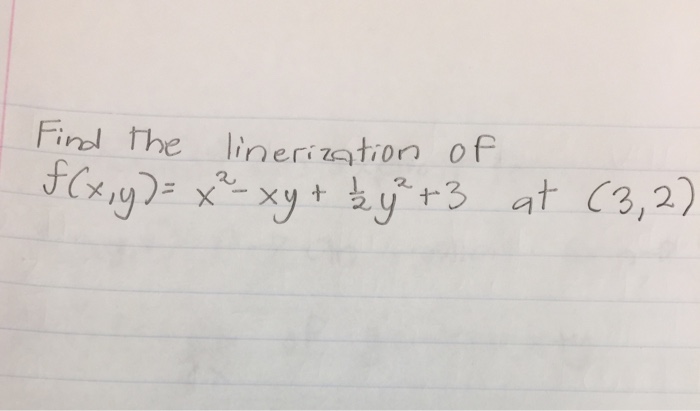 Find the linerization of
f(x,y)= x²- xy + ½y²+3 at (3,2)